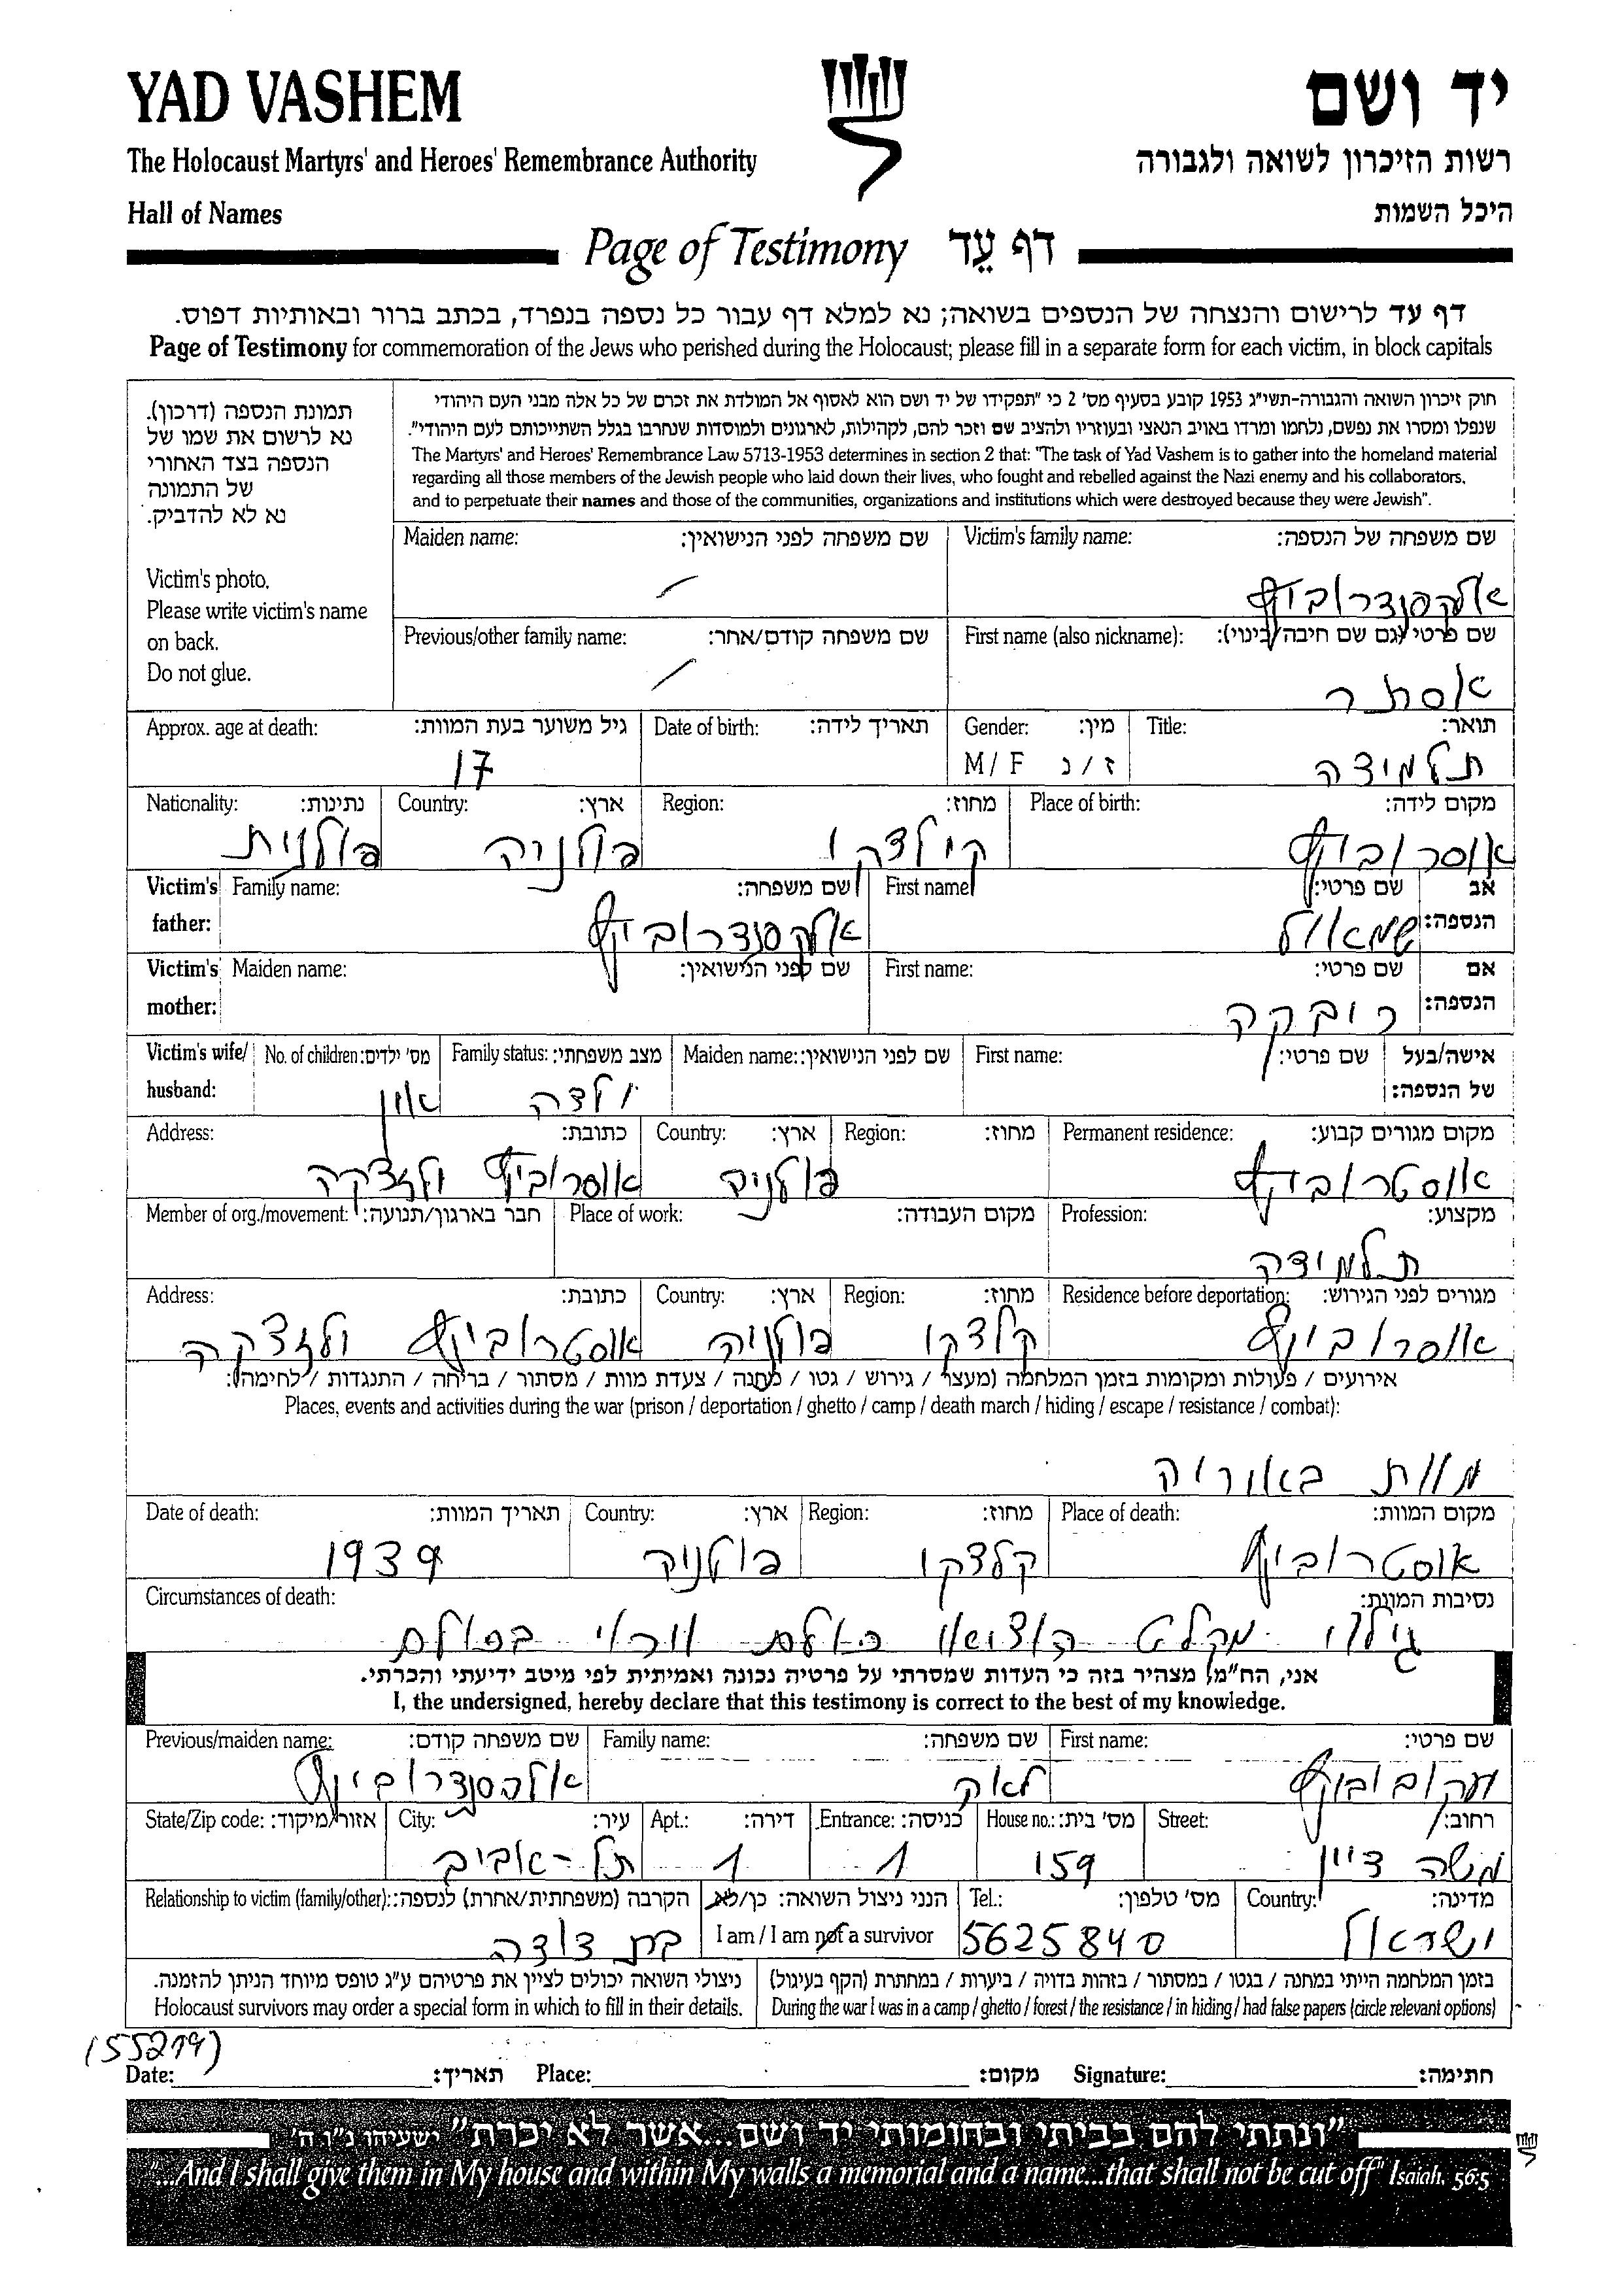 YAD VASHEM יד ושם
The Holocaust Martyrs' and Heroes' Remembrance Authority רשות הזיכרון לשואה ולגבורה
Hall of Names היכל השמות
Page of Testimony דף עֵד
דף עד לרישום והנצחה של הנספים בשואה; נא למלא דף עבור כל נספה בנפרד, בכתב ברור ובאותיות דפוס.
Page of Testimony for commemoration of the Jews who perished during the Holocaust; please fill in a separate form for each victim, in block capitals
תמונת הנספה (דרכון).
נא לרשום את שמו של
הנספה בצד האחורי
של התמונה
נא לא להדביק.
Victim's photo.
Please write victim's name
on back.
Do not glue.
חוק זיכרון השואה והגבורה-תשי"ג 1953 קובע בסעיף מס' 2 כי "תפקידו של יד ושם הוא לאסוף אל המולדת את זכרם של כל אלה מבני העם היהודי
שנפלו ומסרו את נפשם, נלחמו ומרדו באויב הנאצי ובעוזריו ולהציב שם וזכר להם, לקהילות, לארגונים ולמוסדות שנחרבו בגלל השתייכותם לעם היהודי".
The Martyrs' and Heroes' Remembrance Law 5713-1953 determines in section 2 that: "The task of Yad Vashem is to gather into the homeland material
regarding all those members of the Jewish people who laid down their lives, who fought and rebelled against the Nazi enemy and his collaborators,
and to perpetuate their names and those of the communities, organizations and institutions which were destroyed because they were Jewish".
Victim's family name: שם משפחה של הנספה: Maiden name: שם משפחה לפני הנישואין:
אלקסנדרוביץ
First name (also nickname): שם פרטי (גם שם חיבה/כינוי): Previous/other family name: שם משפחה קודם/אחר:
אסתר
Title: תואר: Gender: מין: Date of birth: תאריך לידה: Approx. age at death: גיל משוער בעת המוות:
תלמידה M / F ז / נ 17
Place of birth: מקום לידה: Region: מחוז: Country: ארץ: Nationality: נתינות:
אוסרוביץ קילצקו פולניה פולנית
Victim's father: אב הנספה: First name: שם פרטי: Family name: שם משפחה:
שמאול אלקסנדרוביץ
Victim's mother: אם הנספה: First name: שם פרטי: Maiden name: שם לפני הנישואין:
ריבקה
Victim's wife/husband: אישה/בעל של הנספה: First name: שם פרטי: Maiden name: שם לפני הנישואין: Family status: מצב משפחתי: No. of children: מס' ילדים:
ילדה אין
Permanent residence: מקום מגורים קבוע: Region: מחוז: Country: ארץ: Address: כתובת:
אוסטרוביץ פולניה אוסרוביץ
Profession: מקצוע: Place of work: מקום העבודה: Member of org./movement: חבר בארגון/תנועה:
תלמידה
Residence before deportation: מגורים לפני הגירוש: Region: מחוז: Country: ארץ: Address: כתובת:
אוסרוביץ קלצקו פולניה אוסטרוביץ
אירועים / פעולות ומקומות בזמן המלחמה (מעצר / גירוש / גטו / מחנה / צעדת מוות / מסתור / בריחה / התנגדות / לחימה):
Places, events and activities during the war (prison / deportation / ghetto / camp / death march / hiding / escape / resistance / combat):
מוות
Place of death: מקום המוות: Region: מחוז: Country: ארץ: Date of death: תאריך המוות:
אוסטרוביץ קלצקו פולניה 1939
Circumstances of death: נסיבות המוות:
גילו מקלט הוציאו
אני, הח"מ, מצהיר בזה כי העדות שמסרתי על פרטיה נכונה ואמיתית לפי מיטב ידיעתי והכרתי.
I, the undersigned, hereby declare that this testimony is correct to the best of my knowledge.
First name: שם פרטי: Family name: שם משפחה: Previous/maiden name: שם משפחה קודם:
אלכסנדרוביץ
Street: רחוב: House no.: מס' בית: Entrance: כניסה: Apt.: דירה: City: עיר: State/Zip code: אזור/מיקוד:
משה דיין 159 1 1 תל-אביב
Country: מדינה: Tel.: מס' טלפון: הנני ניצול השואה: כן/לא Relationship to victim (family/other): הקרבה (משפחתית/אחרת) לנספה:
ישראל 5625840 I am / I am not a survivor בת דודה
בזמן המלחמה הייתי במחנה / בגטו / במסתור / בזהות בדויה / ביערות / במחתרת (הקף בעיגול) ניצולי השואה יכולים לציין את פרטיהם ע"ג טופס מיוחד הניתן להזמנה.
During the war I was in a camp / ghetto / forest / the resistance / in hiding / had false papers (circle relevant options) Holocaust survivors may order a special form in which to fill in their details.
(55219)
Date: תאריך: Place: מקום: Signature: חתימה:
"ונתתי להם בביתי ובחומותי יד ושם...אשר לא יכרת" ישעיהו נ"ו ה'
"...And I shall give them in My house and within My walls a memorial and a name...that shall not be cut off" Isaiah, 56:5